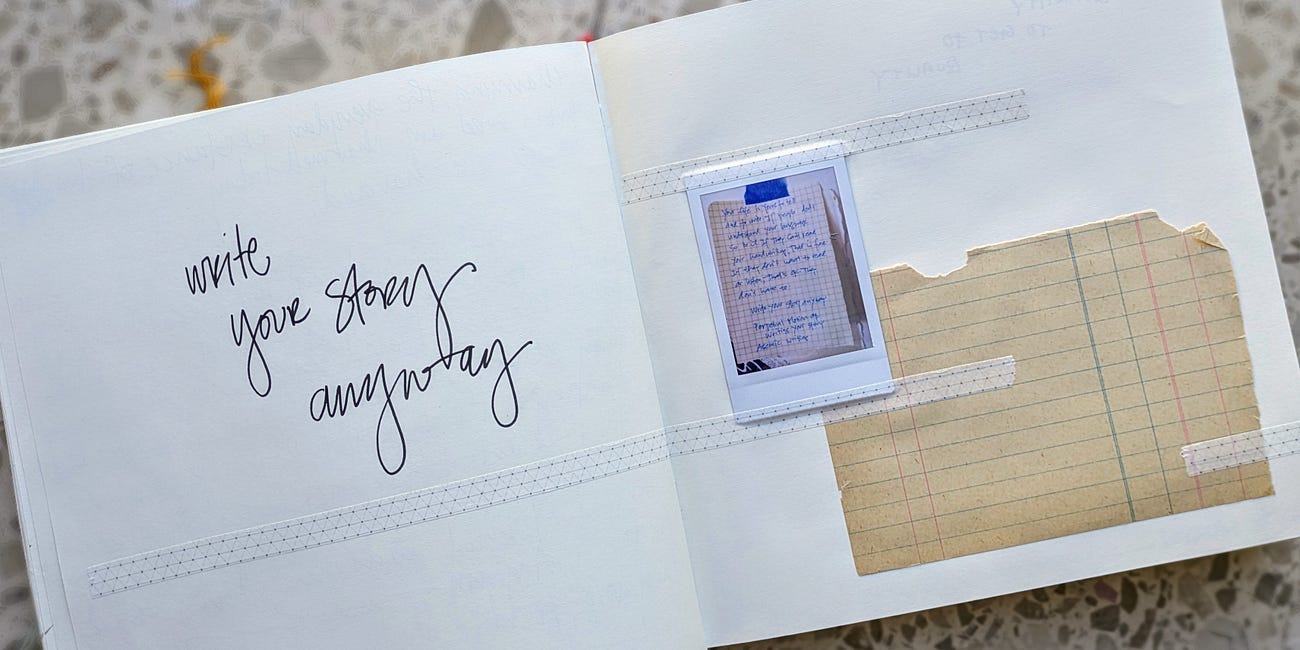 write
your story
anyway
Your life is yours to tell
and to write. If people don't
understand your language
so be it. If they can't read
your handwriting, that is fine
If they don't want to read
or listen, that's ok. They
don't have to.
Write your story anyway
Perpetual Motion of
writing your story
Asemic writing